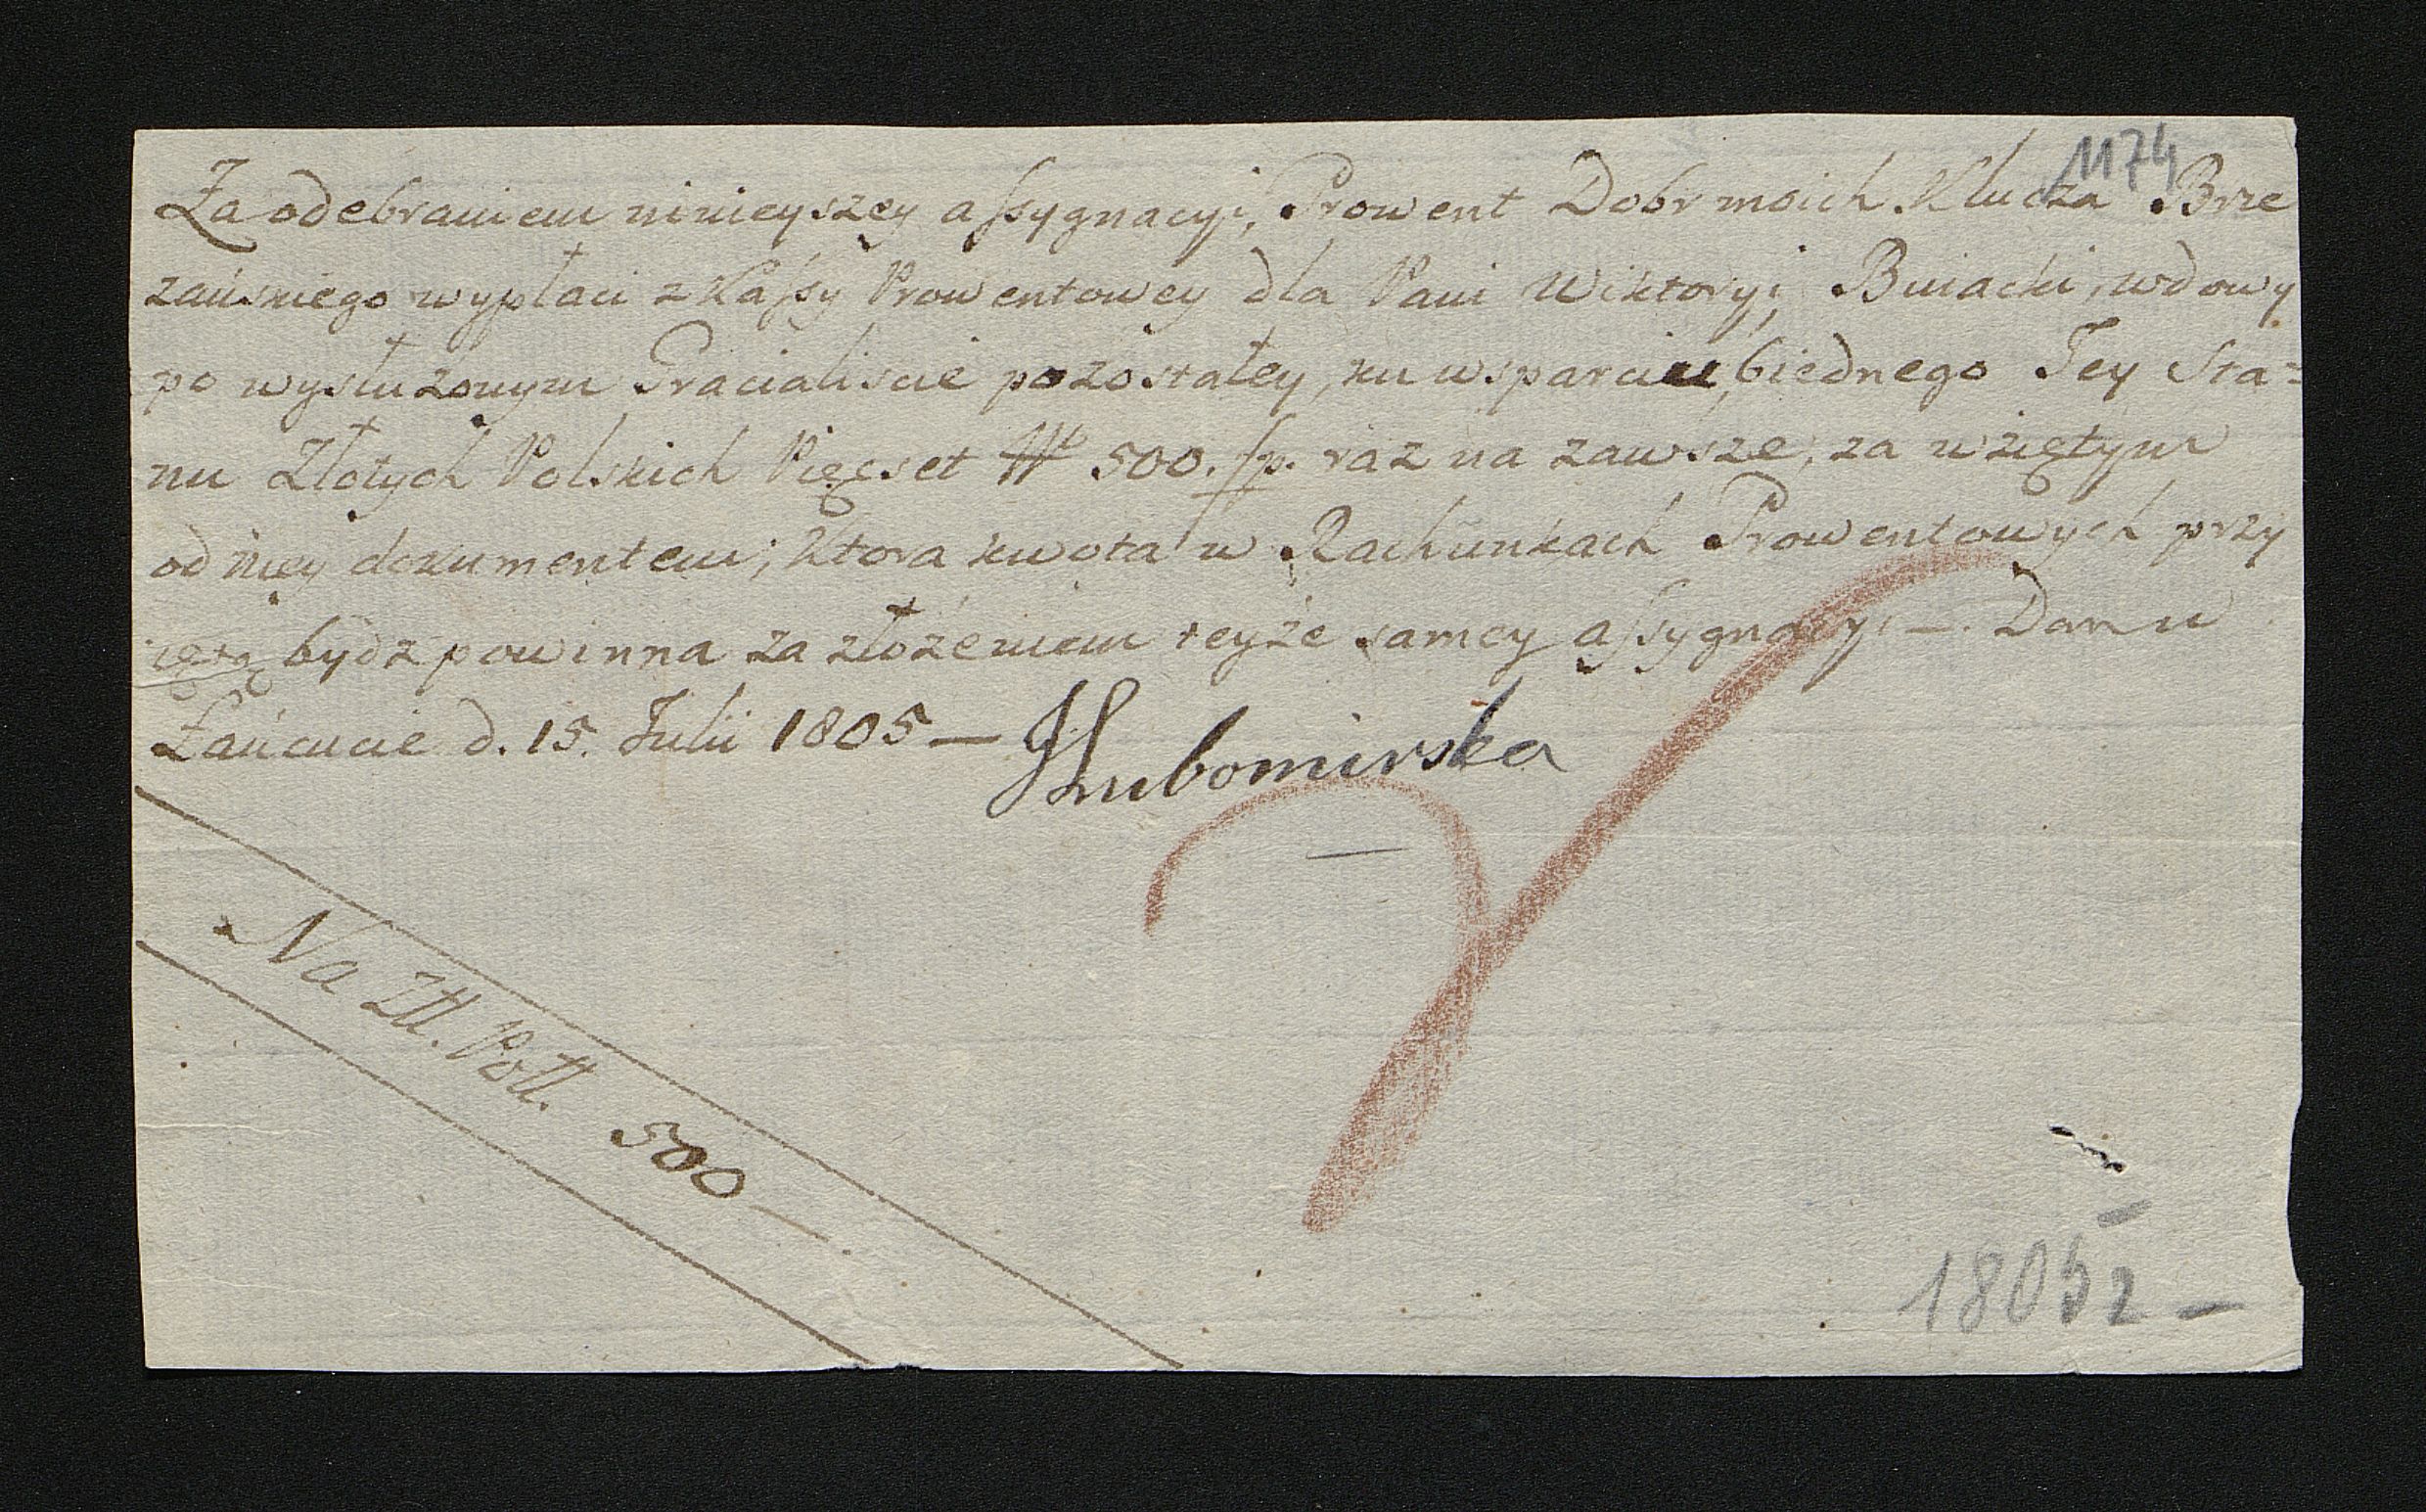 1174
Za odebraniem ninieyszey assygnacyi, Prowent Dobr moich Klucza Brze
zańskiego wypłaci z Kassy Prowentowey dla Pani Wiktoryi Buiacki, wdowy
po wysłużonym Gracialiscie pozostałey, ku wsparciu, biednego Jey Sta=
nu Złotych Polskich Pięcset 500. fp. raz na zawsze, za wziętym
od niey dokumentem; Ktora kwota w Rachunkach Prowentowych przy
iętą bydz powinna za złożeniem teyże samey assygnacyi —. Dan w
Łańcucie d. 15. Julii 1805 — Lubomirska
Na Ztl. Poll. 500 —.
1805 2 —